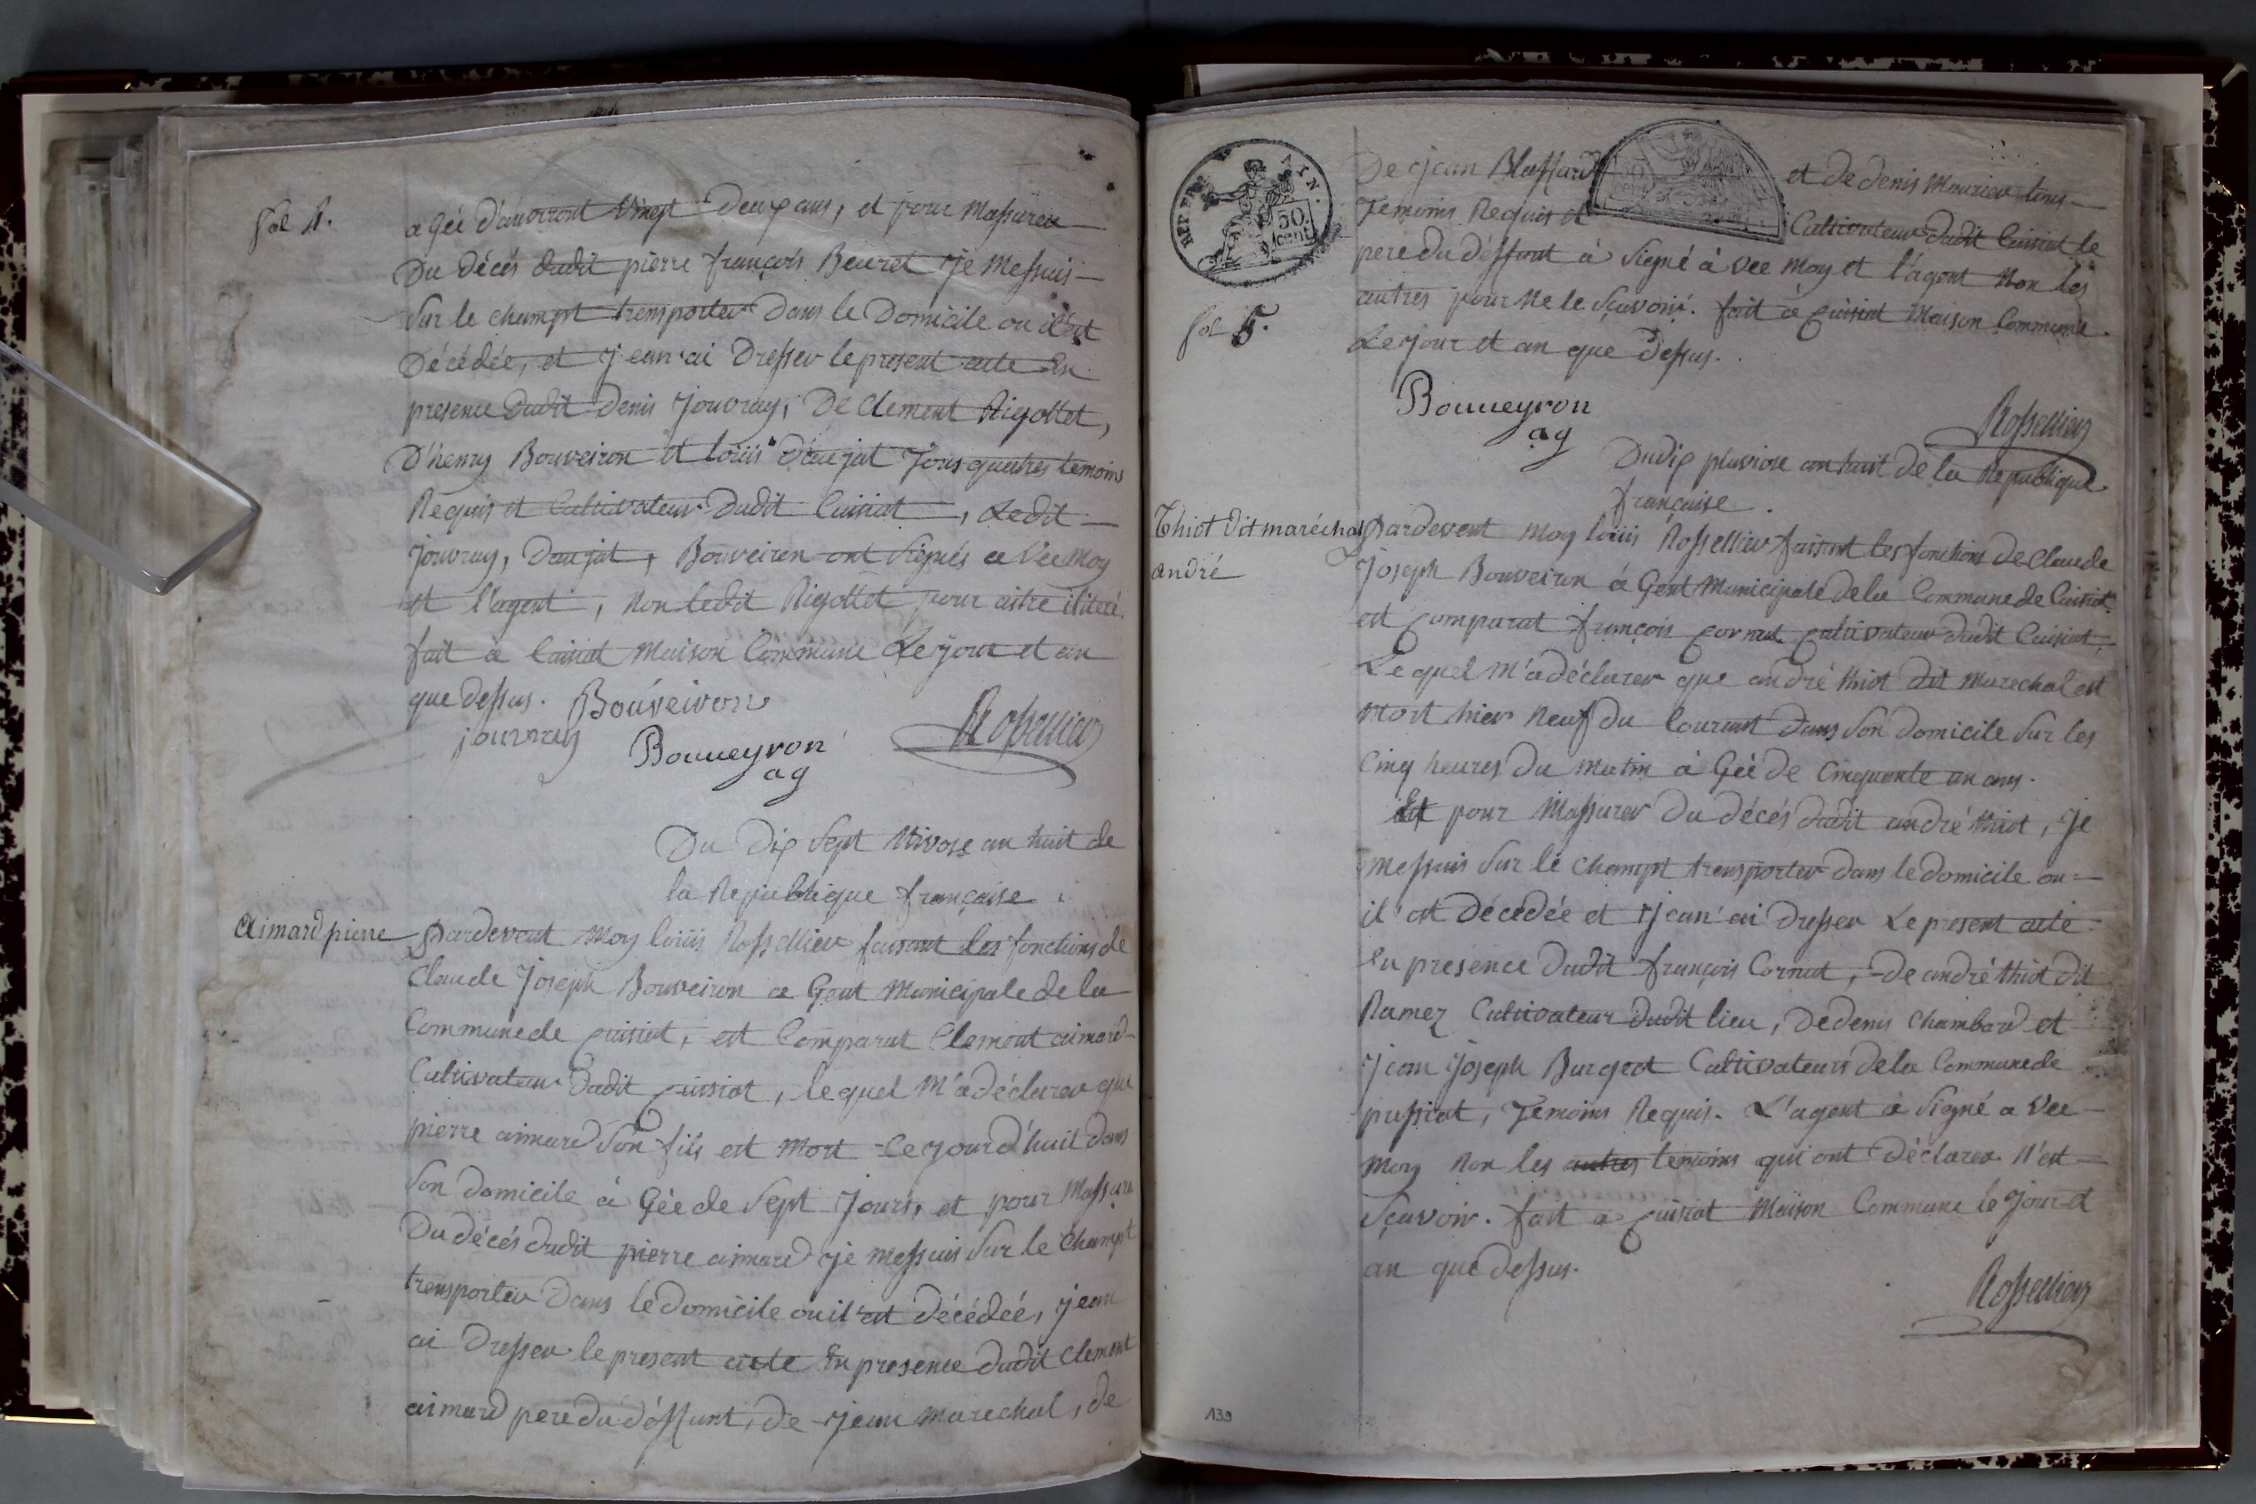 fol 4.
a Gée d'auviront Vingt Deux ans, et pour Massurer
Du décés dudit pierre françois Beuret je Messuis
Sur le champt transporter Dans le Domicile ou il est
Décédée, et jean'ai Dresser le present acte En
presence dudit Denis Jouvray, De Clement Rigottet,
D'henry Bouveiron et louis Daujat Tous quatres temoins
Requis et Cultivateur Dudit Cuisiat, Ledit
jouvray, Daujat, Bouveiron ont Signés a Vec Moy
et l'agent, Non ledit Rigottet pour aitre iliteré.
fait a Cuisiat Maison Commune Le jour et an
que dessus. Bouveiron
jouvray
Rossellier
Bouueyron
ag
Du Dix Sept Nivose an huit de
la Republique française.
Aimard pierre
Pardevant Moy louis Rossellier faisant les fonctions de
Claude Joseph Bouveiron a Gent Municipale de la
Commune de Cuisiat, est Comparut Clement aimard
Cultivateur Dudit Cuisiat, lequel M'a déclarer que
pierre aimard Son fils est Mort Ce jourd'huit dans
Son domicile à Gée de Sept Jours, et pour Massurer
Du décés dudit pierre aimard je Messuis Sur le Champt
transporter Dans le domicile ou il est décédeé, jean
ai Dresser le present acte En presence dudit Clement
aimard pere du déffunt, de jean Marechal, de
REP. FRA
50
cent
De jean Blassard et de denis Mourier tous
Temoins Requis et Cultivateur dudit Cuisiat le
pere du déffunt à Signé à vec Moy et l'agent Non les
autres pour Ne le Sçavoir. fait a Cuisiat Maison Commune
Le jour et an que Dessus.
fol 5.
Bouueyron
ag
Rossellier
Dudix pluviose an huit de la Republique
française.
Thiot dit maréchal
andré
Pardevent Moy louis Rossellier faisant les fonctions de Claude
Joseph Bouveiron à Gent Municipale de la Commune de Cuisiat
est Comparut françois Cornut Cultivateur dudit Cuisiat,
Le quel M'a déclarer que andré thiot dit Marechal est
Mort hier Neuf du Courant dans Son domicile Sur les
Cinq heures Du Matin à Gée de Cinquante un ans.
Et pour Massurer Du décés dudit andré thiot, je
Messuis Sur le champt transporter dans le domicile ou
il est Décédée et jean'ai Dresser Le present acte
En presence Dudit françois Cornut, de andré thiot dit
Ramez Cultivateur dudit lieu, De denis Chambard et
jean Joseph Burgeat Cultivateurs de la Commune de
pressiat, Temoins Requis. L'agent à Signé a Vec
Moy Non les autres temoins qui ont Déclarer N'est
Sçavoir. fait a Cuisiat Maison Commune le Jour et
an que dessus.
Rossellier
139